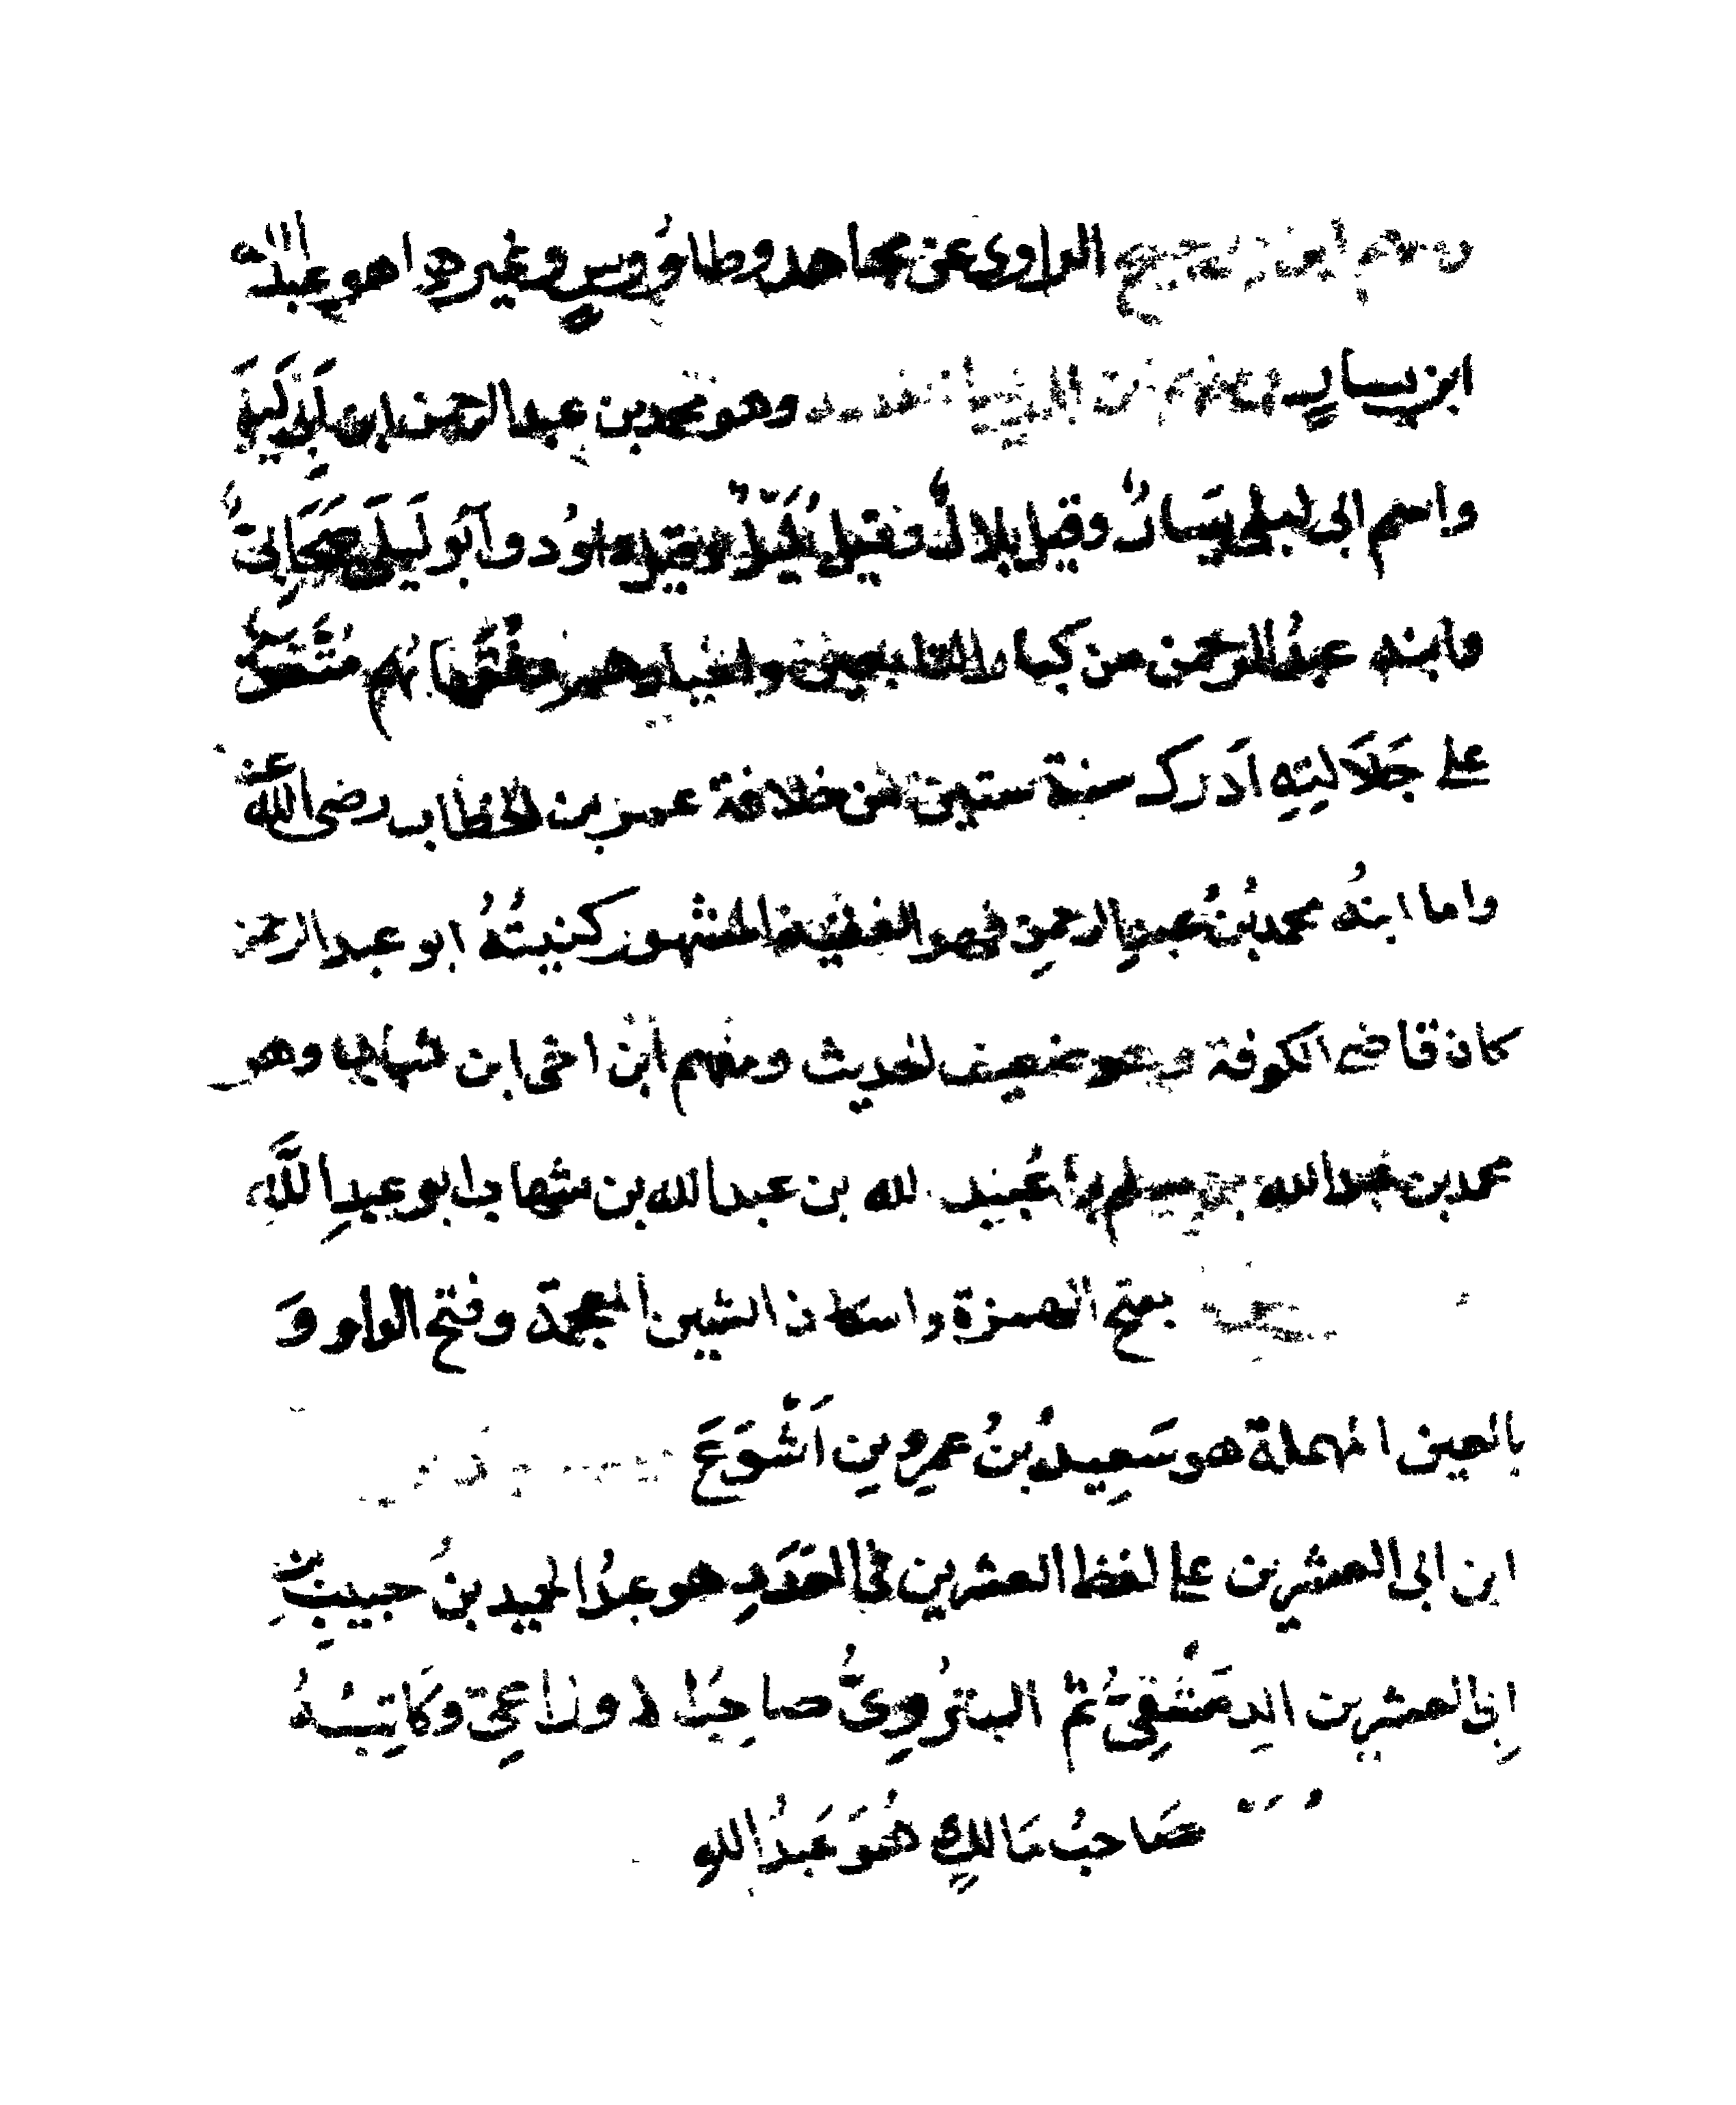 ومنهم ابن ابى نجيح الراوى عن مجاهد وطاوُوسٍ وغيرهما هو عبد الله
ابن يسارٍ ومنهم وهو محمد بن عبد الرحمن ابن اَبِى لَيلَى
واسم ابى ليلى يَسَارٌ وقيل بلالٌ وقيل بُلَيْلٌ وقيل داوُد وآبو لَيلَى صَحَابِىٌّ
وابنه عبدُ الرحمن من كبار التابعين واخيارهم متَّفقٌ
على جَلَالَتِهِ اَدرَكَ سنة ستين من خلافة عمر بن الخطاب رضى الله عنه
واما ابنُه محمد بنُ عبدِ الرحمنِ فهو الفقيه المشهور كنيتُهُ ابو عبد الرحمن
كان قاضى الكوفة وهو ضعيف الحديث ومنهم ابن اخى ابن شهاب وهو
محمد بن عبد الله بن مسلم بن عُبيد الله بن عبد الله بن شهاب ابو عبدِ اللَّهِ
بفتح الهمزة واسكان الشين المعجمة وفتح الواو وَ
بالعين المهملة هو سَعِيدُ بنُ عمرِو بنِ اَشْوَعَ
ابن ابى العشرين على لفظ العشرين فى العَدَدِ هو عبدُ الحميد بنُ حبيبِ بنِ
اِبى العشرين الدِمَشْقِىُّ ثم البيْرُوتِىُّ صاحِبُ الاوزاعِىّ وكَاتِبُهُ
صَاحبُ مَالكٍ هُوَ عَبدُ اللهِ